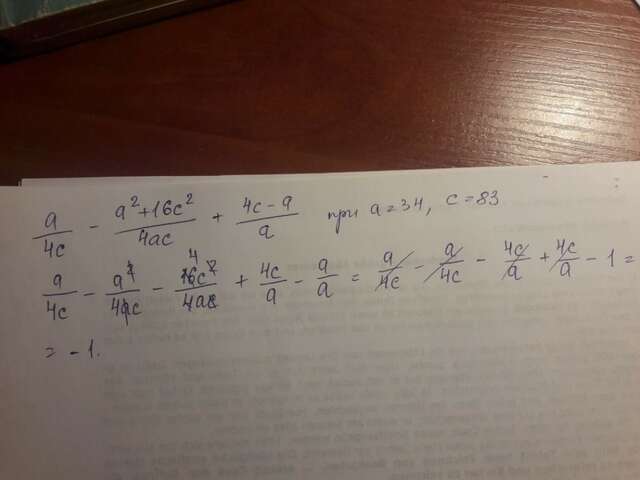 a/4c - (a²+16c²)/4ac + (4c-a)/a при a=34, c=83
a/4c - a²/4ac - 16c²/4ac + 4c/a - a/a = a/4c - a/4c - 4c/a + 4c/a - 1 =
= -1.